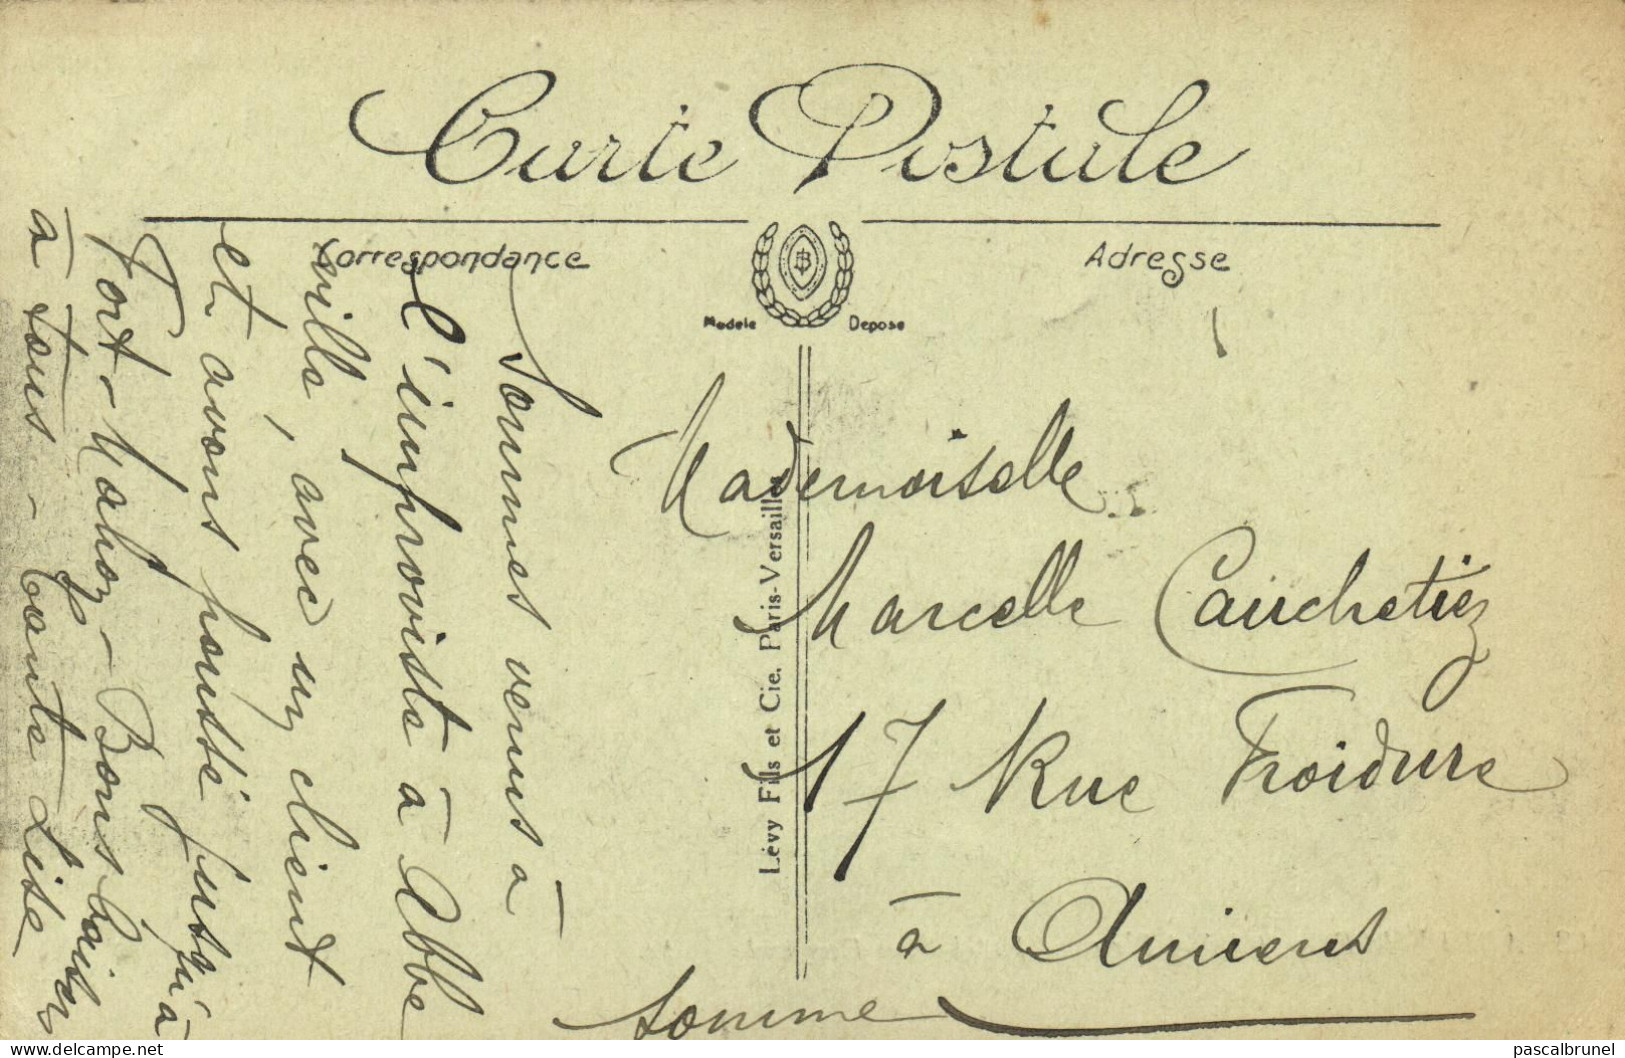 Carte Postale
Correspondance
Adresse
Modele Depose
Lévy Fils et Cie. Paris-Versailles
Sommes venus à
l'improviste à Abbe
ville, avec un client
et avons poussé jusqu'à
Fort-Mahon - Bons baisers
à tous - Tante Lise
Mademoiselle
Marcelle Cauchetiez
17 Rue Froidure
à Amiens
Somme
pascalbrunel